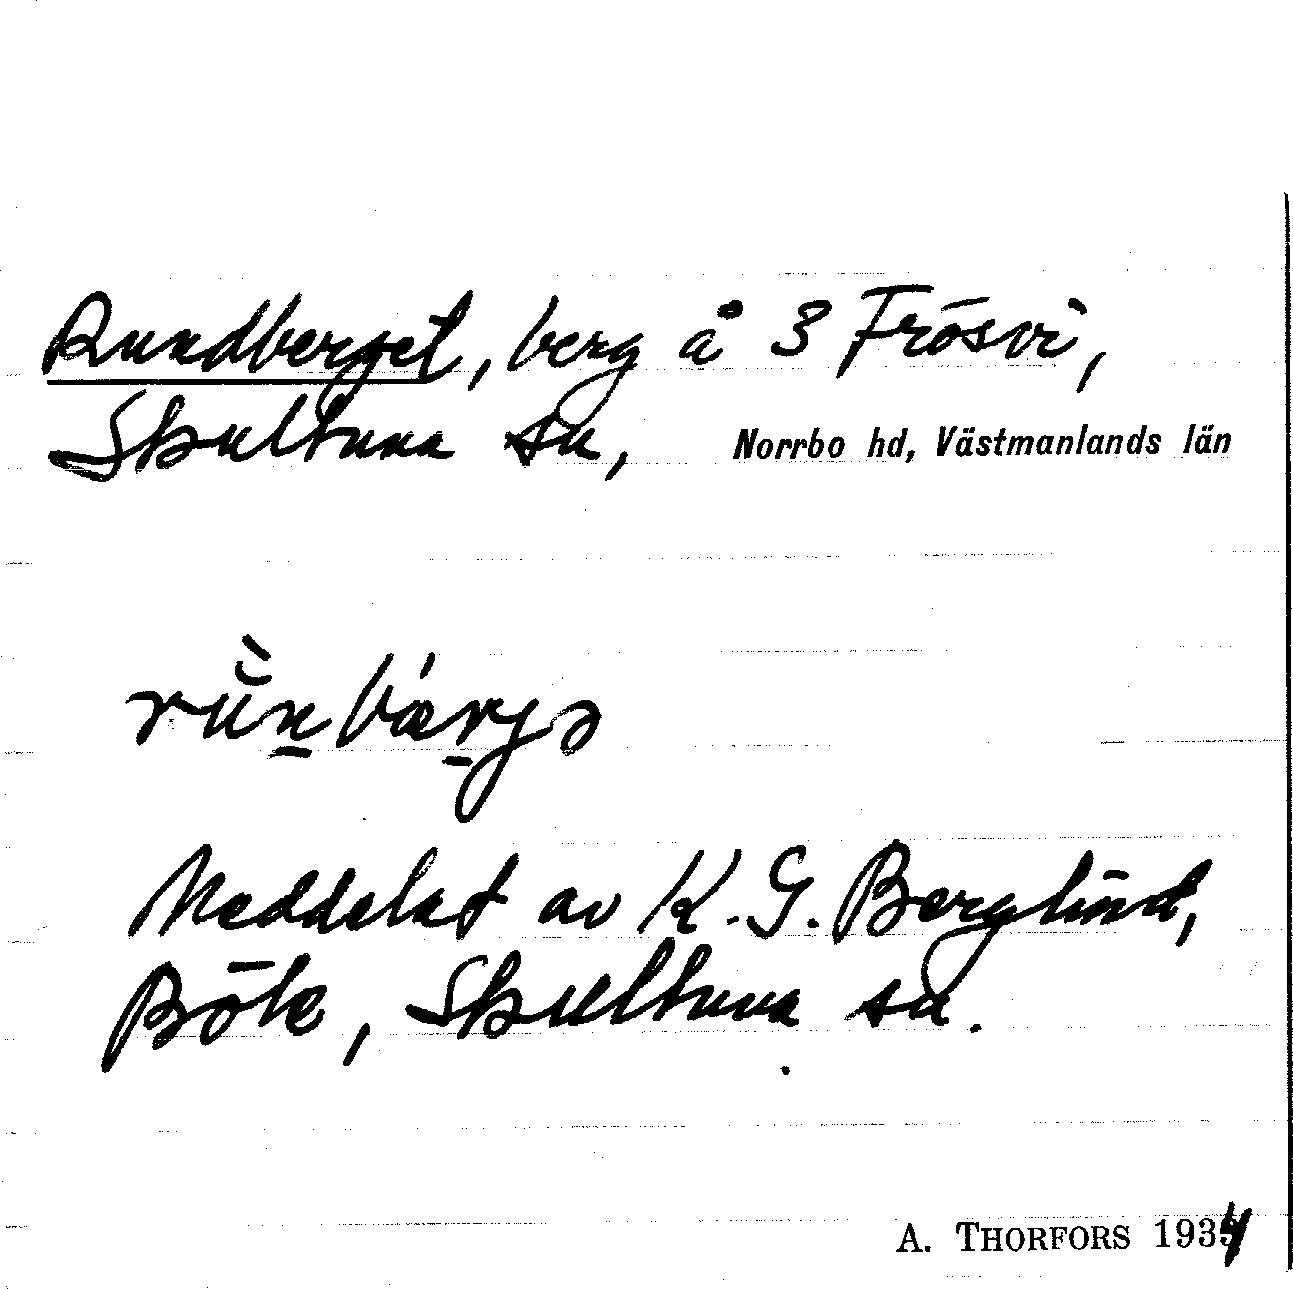 Rundberget, berg å 3 Frösvi,
Skultuna sn, Norrbo hd, Västmanlands län
rùn̠bǽr̠jə
Meddelat av K. G. Berglund,
Böle, Skultuna sn.
A. THORFORS 1934